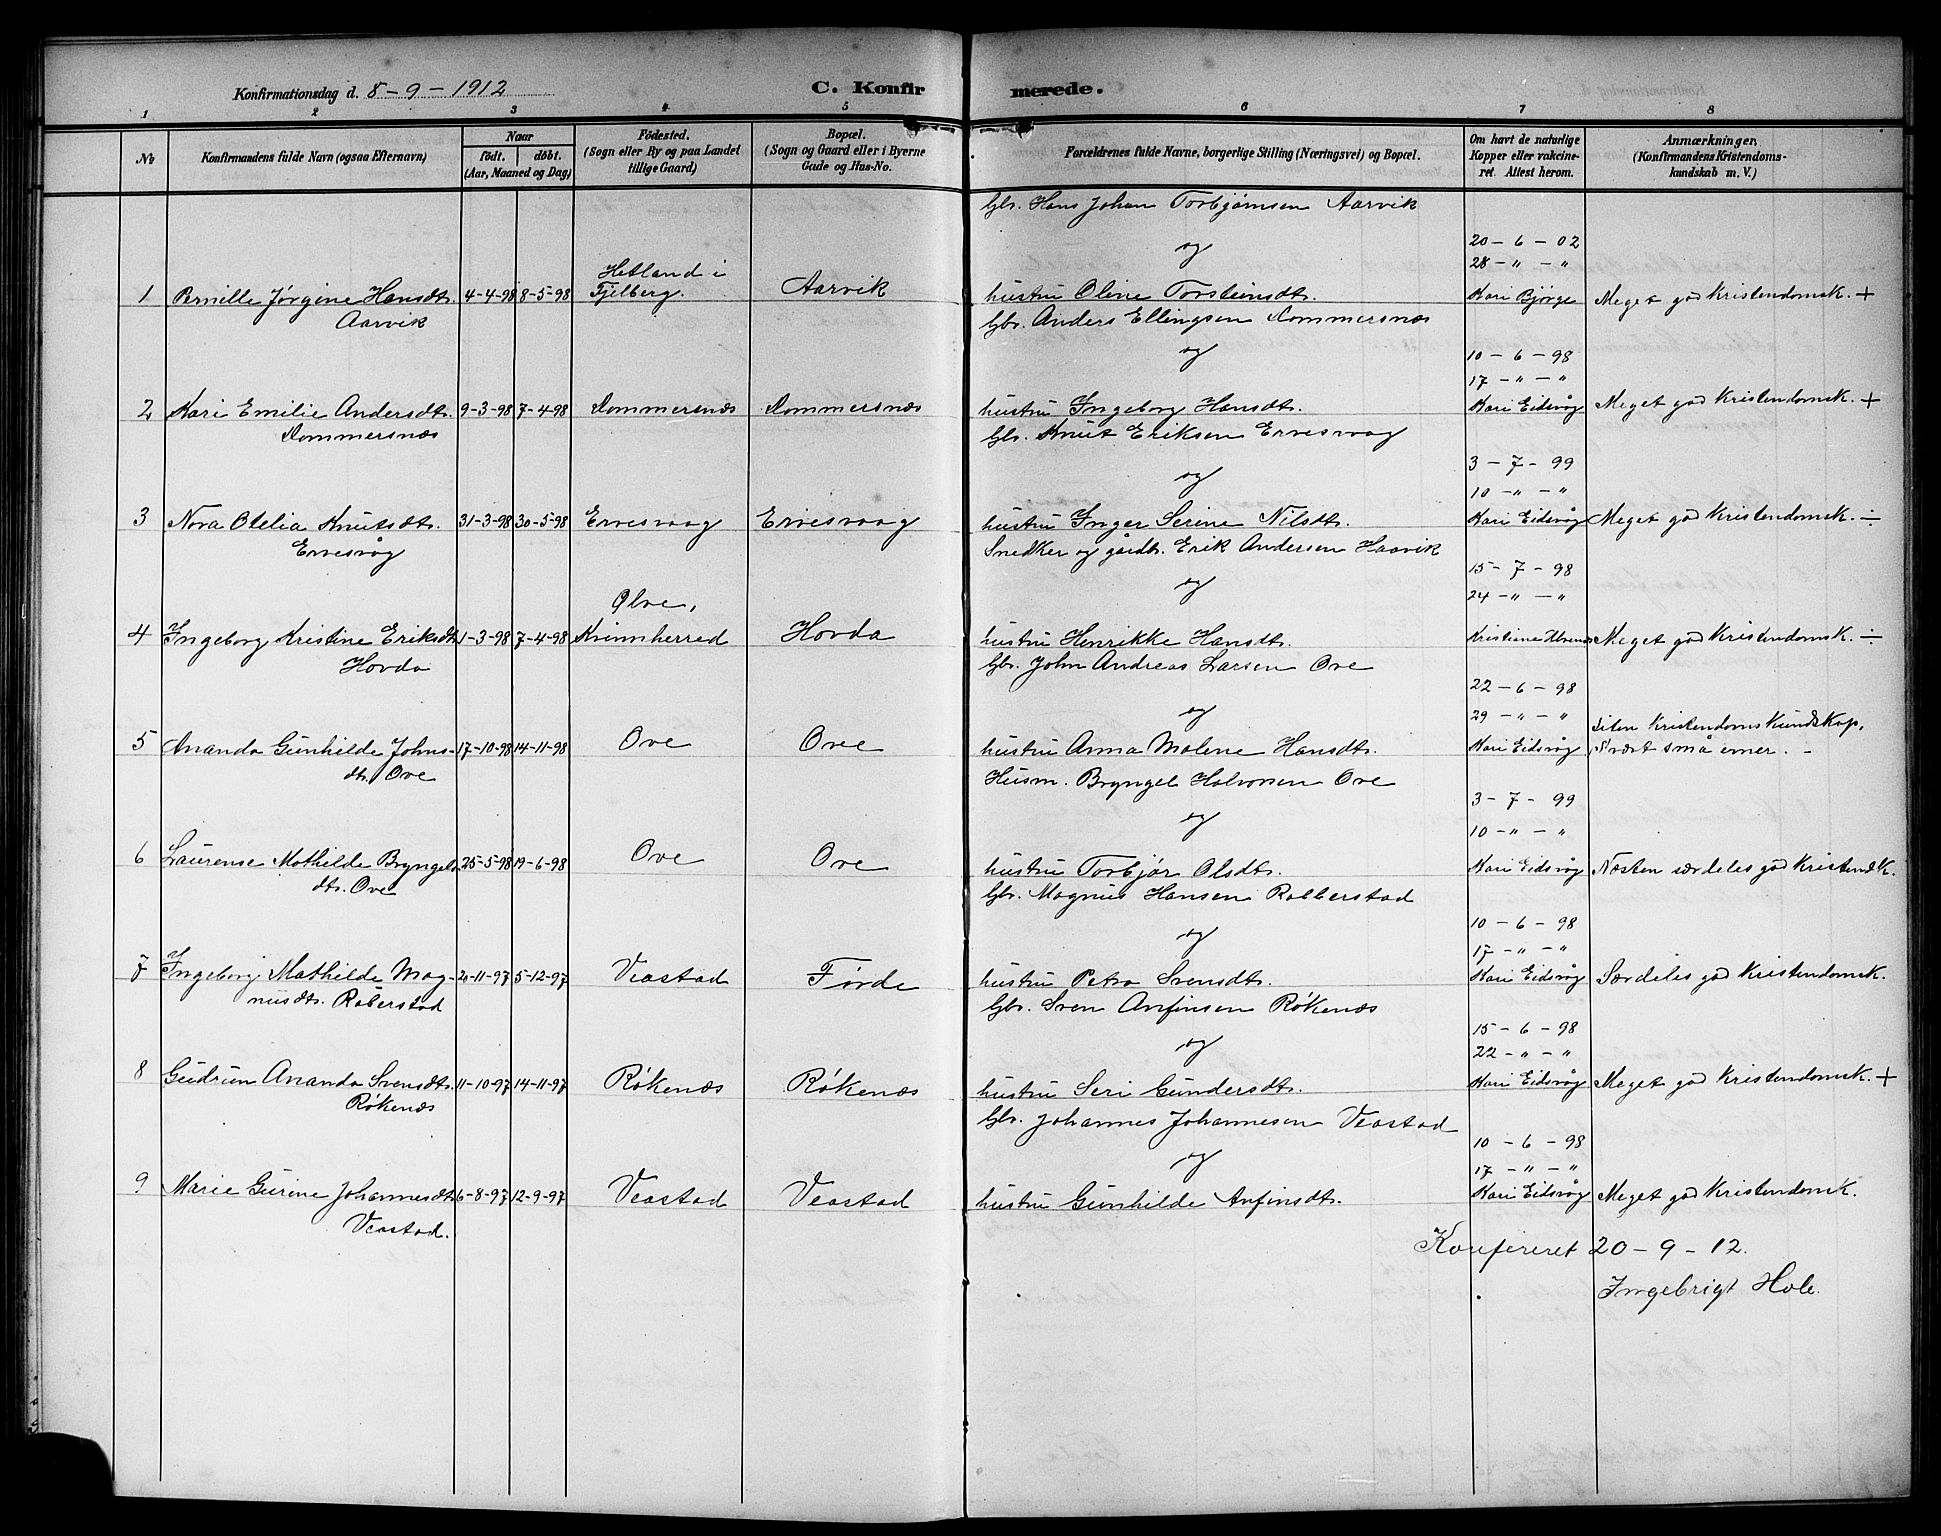 Konfirmationsdag d. 8-9-1912
C. Konfirmerede.
1 2 3 4 5 6 7 8
No
Konfirmandens fulde Navn (ogsaa Efternavn)
Naar
født. døbt.
(Aar, Maaned og Dag)
Fødested.
(Sogn eller By og paa Landet
tillige Gaard)
Bopæl.
(Sogn og Gaard eller i Byerne
Gade og Hus-No.
Forældrenes fulde Navne, borgerlige Stilling (Næringsvei) og Bopæl.
Om havt de naturlige
Kopper eller vakcine-
ret. Attest herom.
Anmærkninger,
(Konfirmandens Kristendoms-
kundskab m. V.)
Gbr. Hans Johan Torbjørnsen Aarvik
og 20-6-02
28-"-"
1 Pernille Jørgine Hansdtr. 4-4-98 8-5-98 Hetland i
Fjelberg. Aarvik hustru Oline Torsteinsdtr. Kari Bjørge Meget god Kristendomsk. +
Aarvik
Gbr. Anders Ellingsen Kommersnæs
og 10-6-98
17-"-"
2 Kari Emilie Andersdtr. 9-3-98 7-4-98 Kommersnæs Kommersnæs hustru Ingeborg Hansdtr. Kari Eidsvåg Meget god Kristendomsk. +
Kommersnæs
Gbr. Knut Eriksen Ervesvaag
og 3-7-99
10-"-"
3 Nora Otelia Knutsdtr. 31-3-98 30-5-98 Ervesvaag Ervesvaag hustru Inger Serine Nilsdtr. Kari Eidsvåg Meget god Kristendomsk. ÷
Ervesvåg
Snedker og gårdbr. Erik Andersen Haavik
og 15-7-98
24-"-"
4 Ingeborg Kristine Eriksdtr. 1-3-98 7-4-98 Ølve,
Kvinnherred Hovda hustru Henrikke Hansdtr. Kristiane Meget god Kristendomsk. ÷
Hovda
Gbr. John Andreas Larsen Ove
og 22-6-98
29-"-"
5 Ananda Gunhilde Johns- 17-10-98 14-11-98 Ove Ove hustru Anna Malene Hansdtr. Kari Eidsvåg Liten Kristendomskundskap,
Svært små evner. -
dtr. Ove
Husm. Bryngel Halvorsen Ove
og 3-7-99
10-"-"
6 Laurense Mathilde Bryngels- 25-5-98 19-6-98 Ove Ove hustru Torbjør Olsdtr. Kari Eidsvåg Næsten særdeles god Kristendk.
dtr. Ove
Gbr. Magnus Hansen Rabberstad
og 10-6-98
17-"-"
7 Ingeborg Mathilde Mag- 20-11-97 5-12-97 Veastad Førde hustru Petra Svensdtr. Kari Eidsvåg Særdeles god Kristendomsk.
nusdtr. Raberstad
Gbr. Sven Anfinsen Røkenæs
og 15-6-98
22-"-"
8 Gudrun Ananda Svensdtr. 11-10-97 14-11-97 Røkenæs Røkenæs hustru Seri Gundersdtr. Kari Eidsvåg Meget god Kristendomsk. +
Røkenæs
Gbr. Johannes Johannesen Veastad
og 10-6-98
17-"-"
9 Marie Gurine Johannesdtr. 6-8-97 12-9-97 Veastad Veastad hustru Gunhilde Anfinsdtr. Kari Eidsvåg Meget god Kristendomsk.
Veastad.
Konfereret 20-9-12.
Ingebrigt Hole